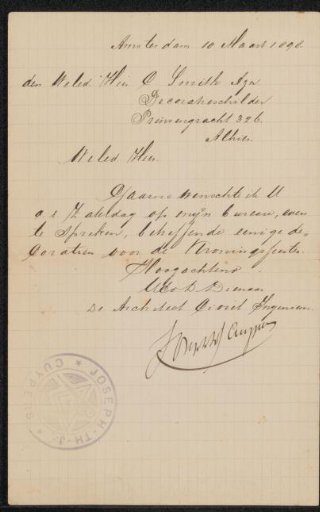 Amsterdam 10 Maart 1898
den Weled. Heer C Smith Azn
Decoratieschilder
Prinsengracht 326
Alhier
Weled Heer.
Gaarne wenschte ik U
a. s. Zaterdag op mijn bureau, even
te spreken, betreffende eenige de-
coratien voor de Kroningsfeesten.
Hoogachtend
UEd D Dienaar
De Architect Civiel Ingenieur.
Joseph Cuypers
JOSEPH TH. J. CUYPERS